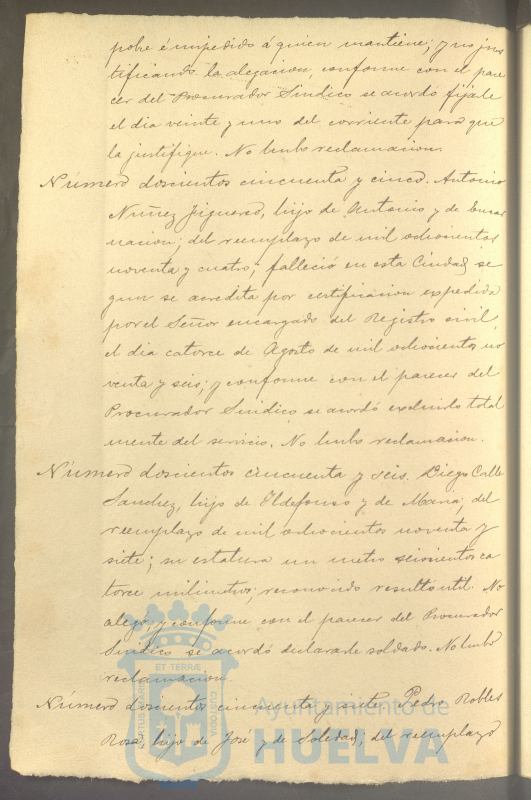 pobre é impedido á quien mantiene; y no jus
tificando la alegacion, conforme con el pare
cer del Procurador Sindico se acordó fijarle
el dia veinte y uno del corriente para que
la justifique. No hubo reclamacion.
Número doscientos cincuenta y cinco. Antonio
Nuñez Figueroa, hijo de Antonio y de Encar
nacion; del reemplazo de mil ochocientos
noventa y cuatro; falleció en esta Ciudad, se
gun se acredita por certificacion expedida
por el Señor encargado del Registro civil,
el dia catorce de Agosto de mil ochocientos no
venta y seis; y conforme con el parecer del
Procurador Sindico se acordó excluirlo total
mente del servicio. No hubo reclamacion.
Número doscientos cincuenta y seis. Diego Calle
Sanchez, hijo de Ildefonso y de Maria; del
reemplazo de mil ochocientos noventa y
siete; su estatura un metro seiscientos ca
torce milimetros; reconocido resultó util. No
alegó, y conforme con el parecer del Procurador
Sindico se acordó declararle soldado. No hubo
reclamacion.
Número doscientos cincuenta y siete. Pedro Robles
Rosa, hijo de José y de Soledad; del reemplazo
ET TERRÆ
Ayuntamiento de
HUELVA